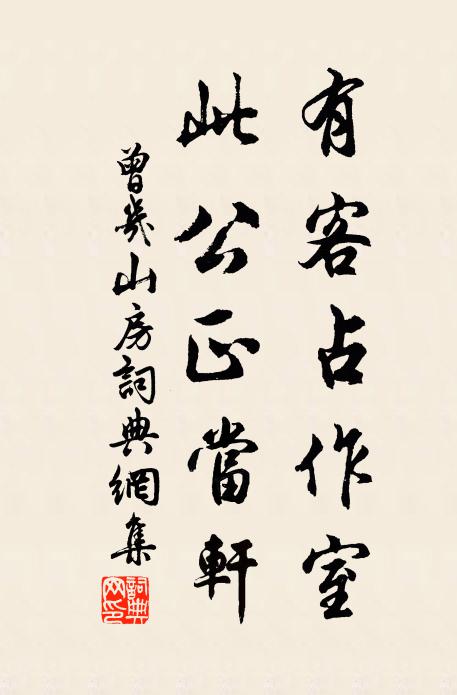 有客占作室
此公正當軒
曾幾山房詞典網集
詞典網印